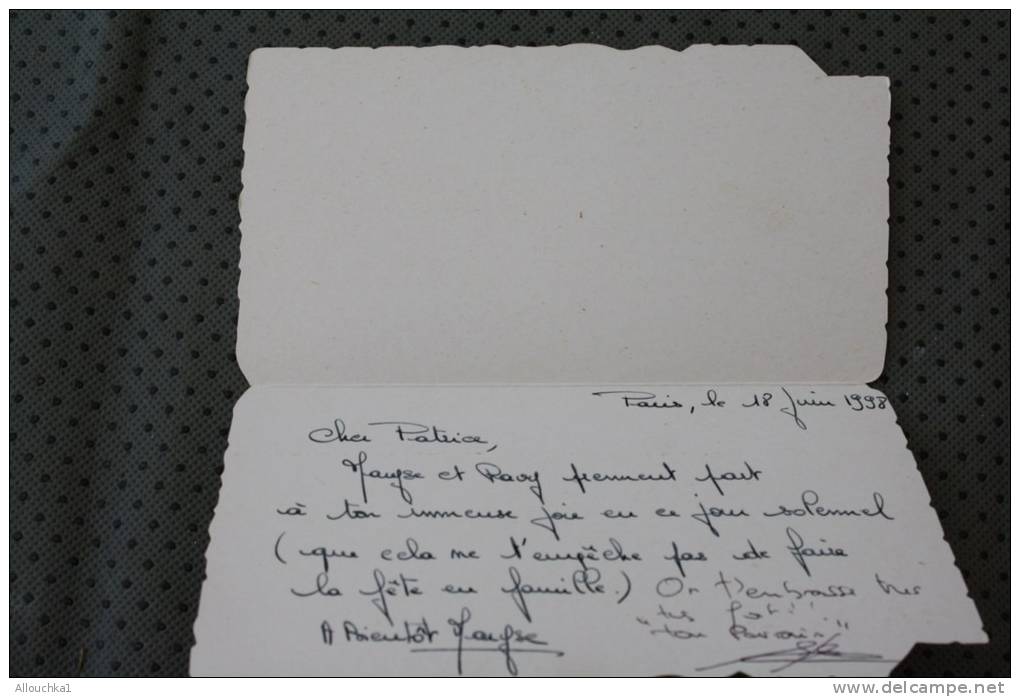 Paris, le 18 Juin 1998
Cher Patrice,
Maryse et prennent part
à ton immense joie en ce jour solennel
(que cela ne t'empêche pas de faire
la fête en famille.) On t'embrasse très
très fort!!
"ton Parrain"
A Bientôt Maryse
Allouchka1
delcampe.net